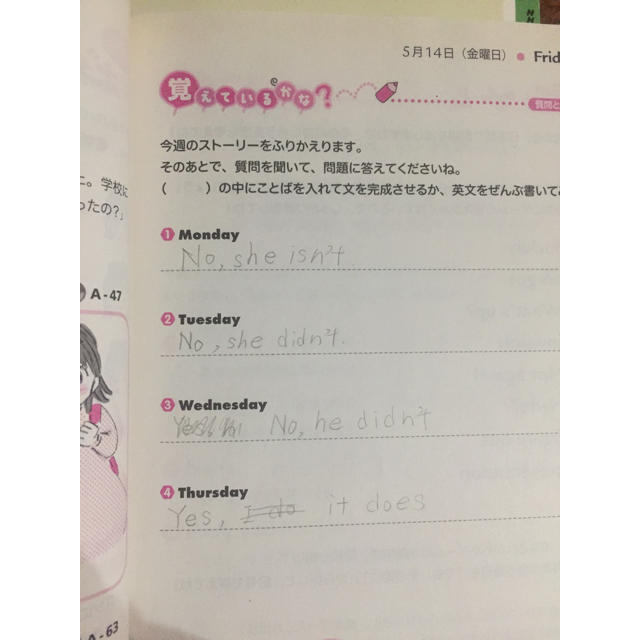 5月14日（金曜日）
覚えているかな？
質問と
今週のストーリーをふりかえります。
そのあとで、質問を聞いて、問題に答えてくださいね。
（　　　）の中にことばを入れて文を完成させるか、英文をぜんぶ書いて
1 Monday
No, she isn't.
2 Tuesday
No, she didn't.
3 Wednesday
No, he didn't
4 Thursday
Yes, I do it does
。学校に
ったの?」
A-47
A-63